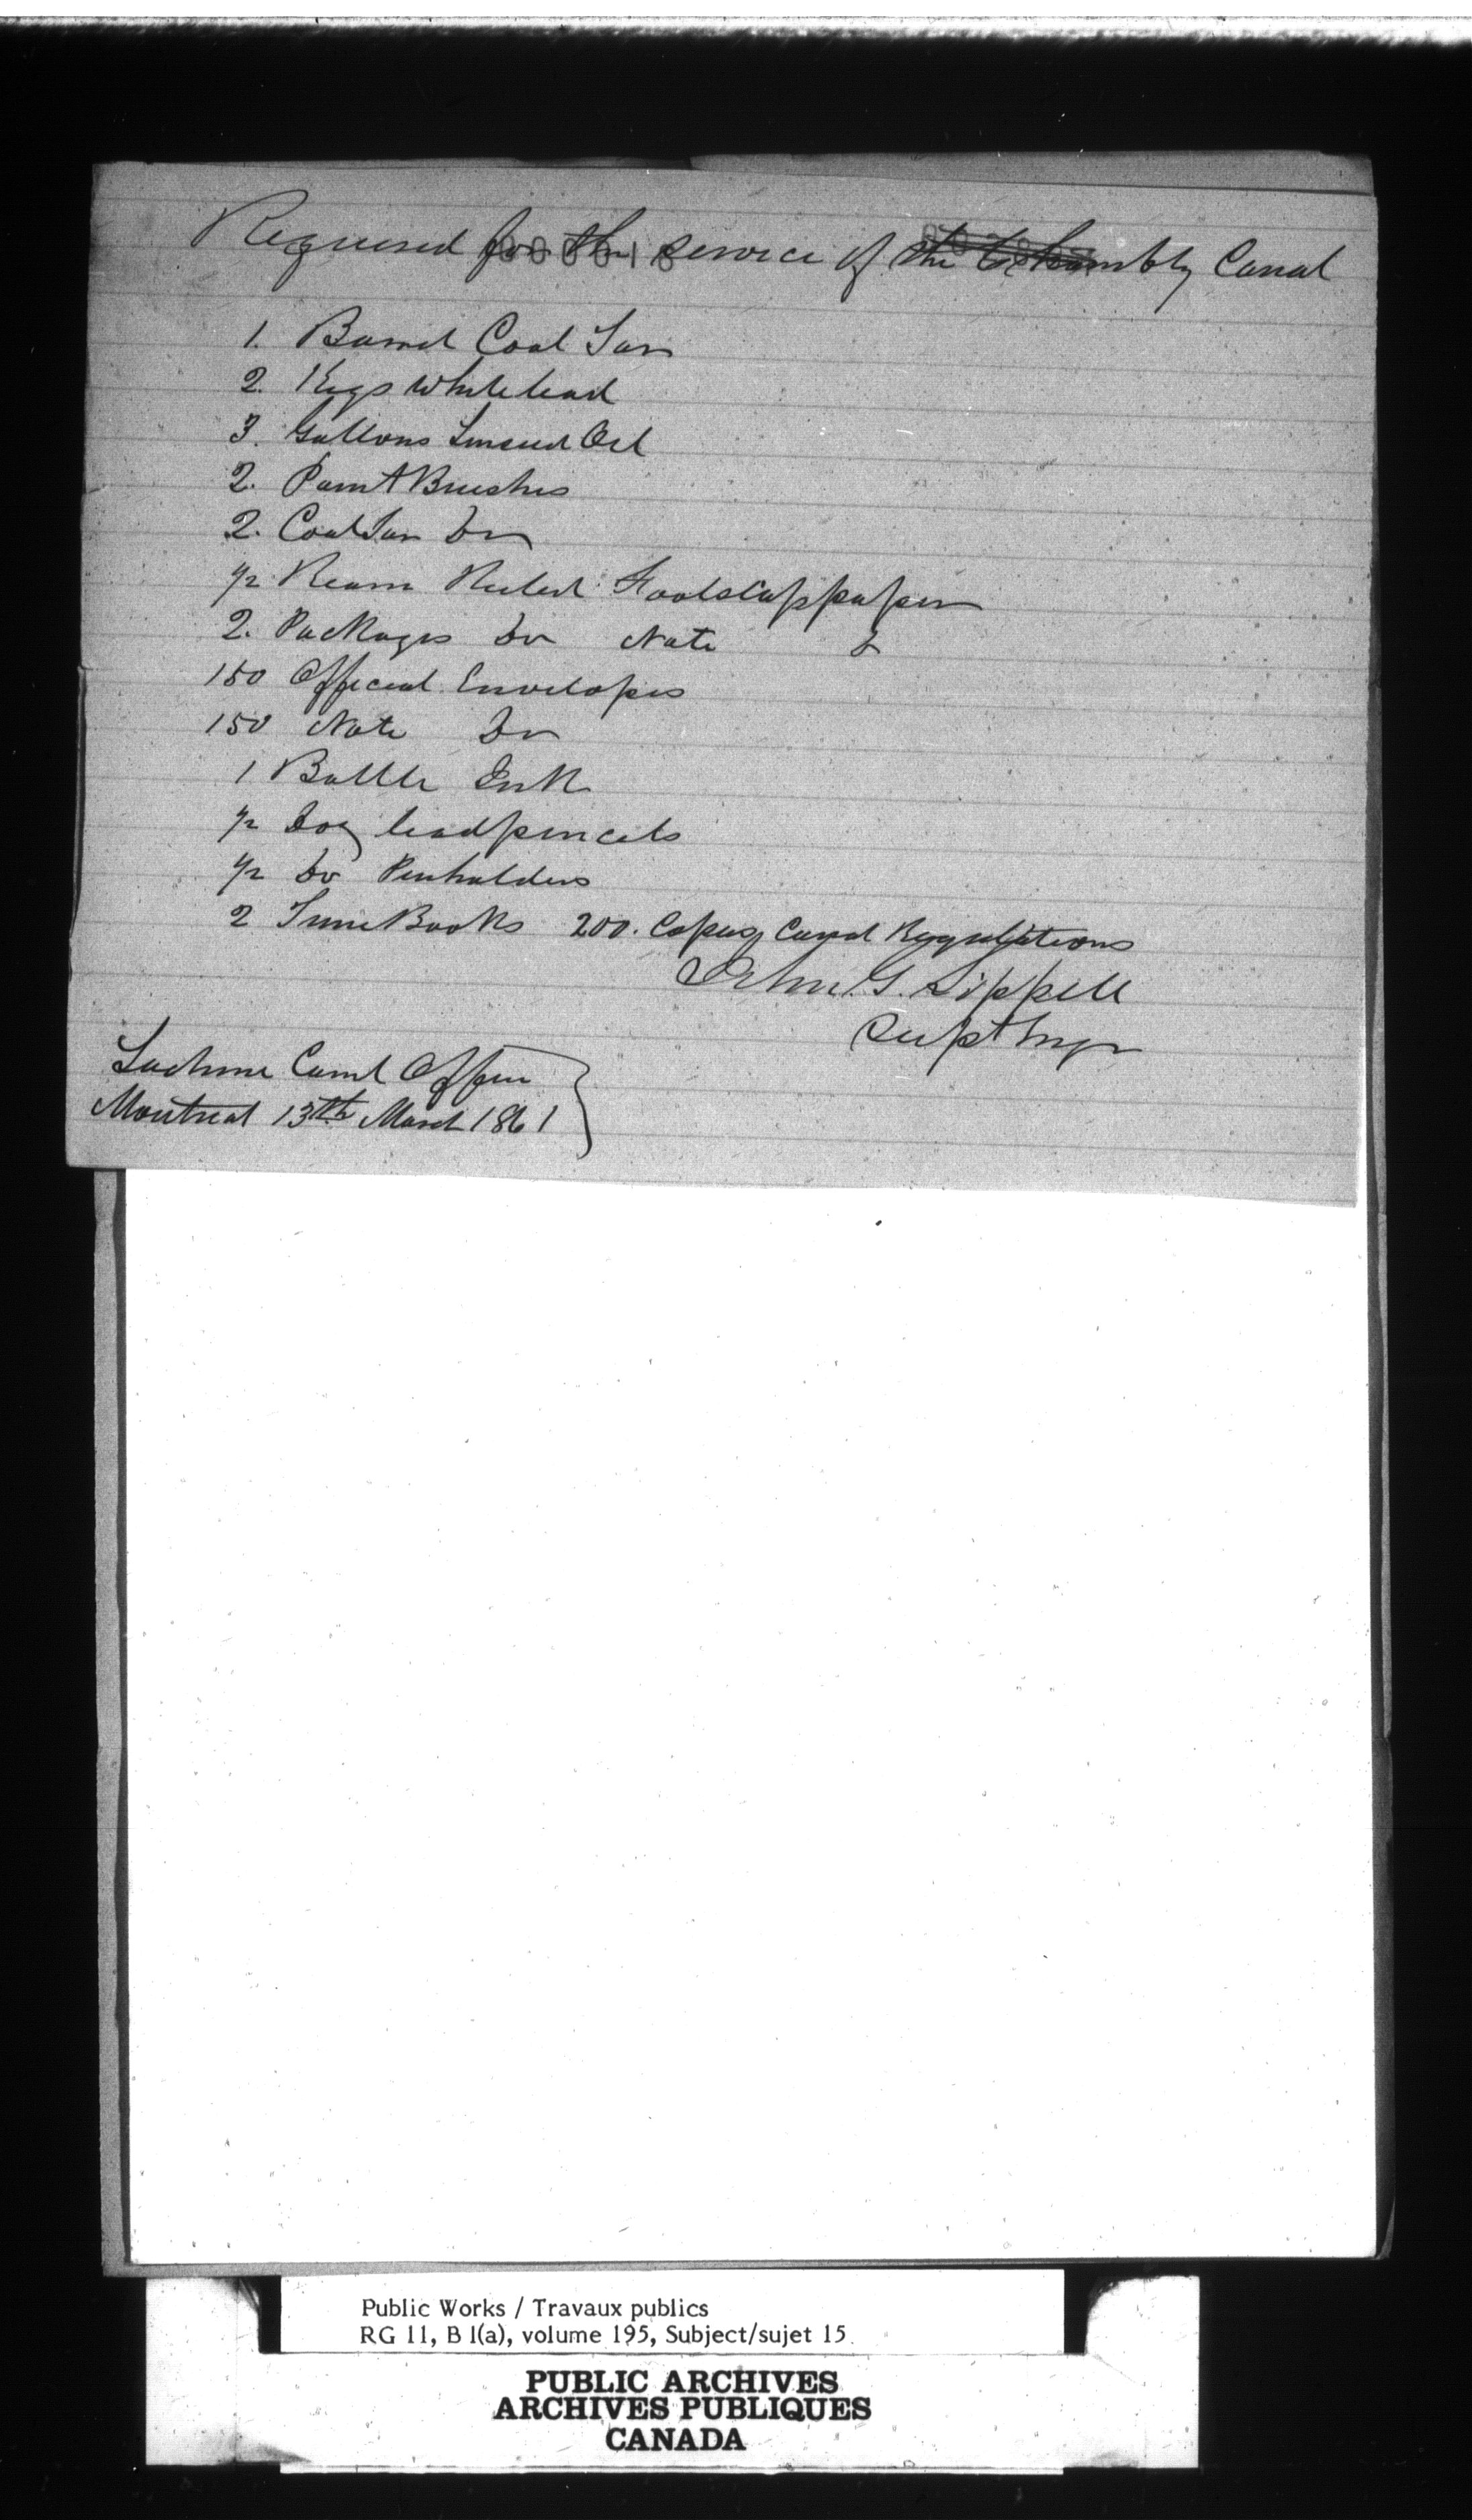 Required for the service of the Chambly Canal
000616
1. Barrel Coal Tar
2. Kegs Whitelead
3. Gallons Linseed Oil
2. Paint Brushes
2. Coal Tar Do
1/2 Ream Ruled Foolscap paper
2. Packages Do Note Do
150 Official Envelopes
150 Note Do
1 Bottle Ink
1/2 Doz lead pencils
1/2 Do Penholders
2 Time Books 200. Copies Canal Regulations
John. G. Sippell
Supt Engr
Lachine Canal Office
Montreal 13th March 1861
Public Works / Travaux publics
RG 11, B 1(a), volume 195, Subject/sujet 15
PUBLIC ARCHIVES
ARCHIVES PUBLIQUES
CANADA